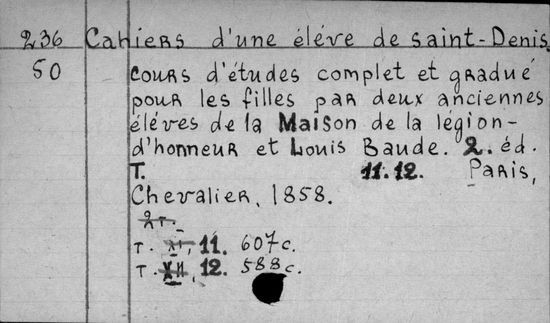 236 Cahiers d'une éléve de saint-Denis.
50 cours d'études complet et gradué
pour les filles par deux anciennes
éléves de la Maison de la légion-
d'honneur et Louis Baude. 2. éd.
T. 11.12. Paris,
Chevalier, 1858.
2 т.
т. XI, 11. 607 с.
т. XII, 12. 588 с.